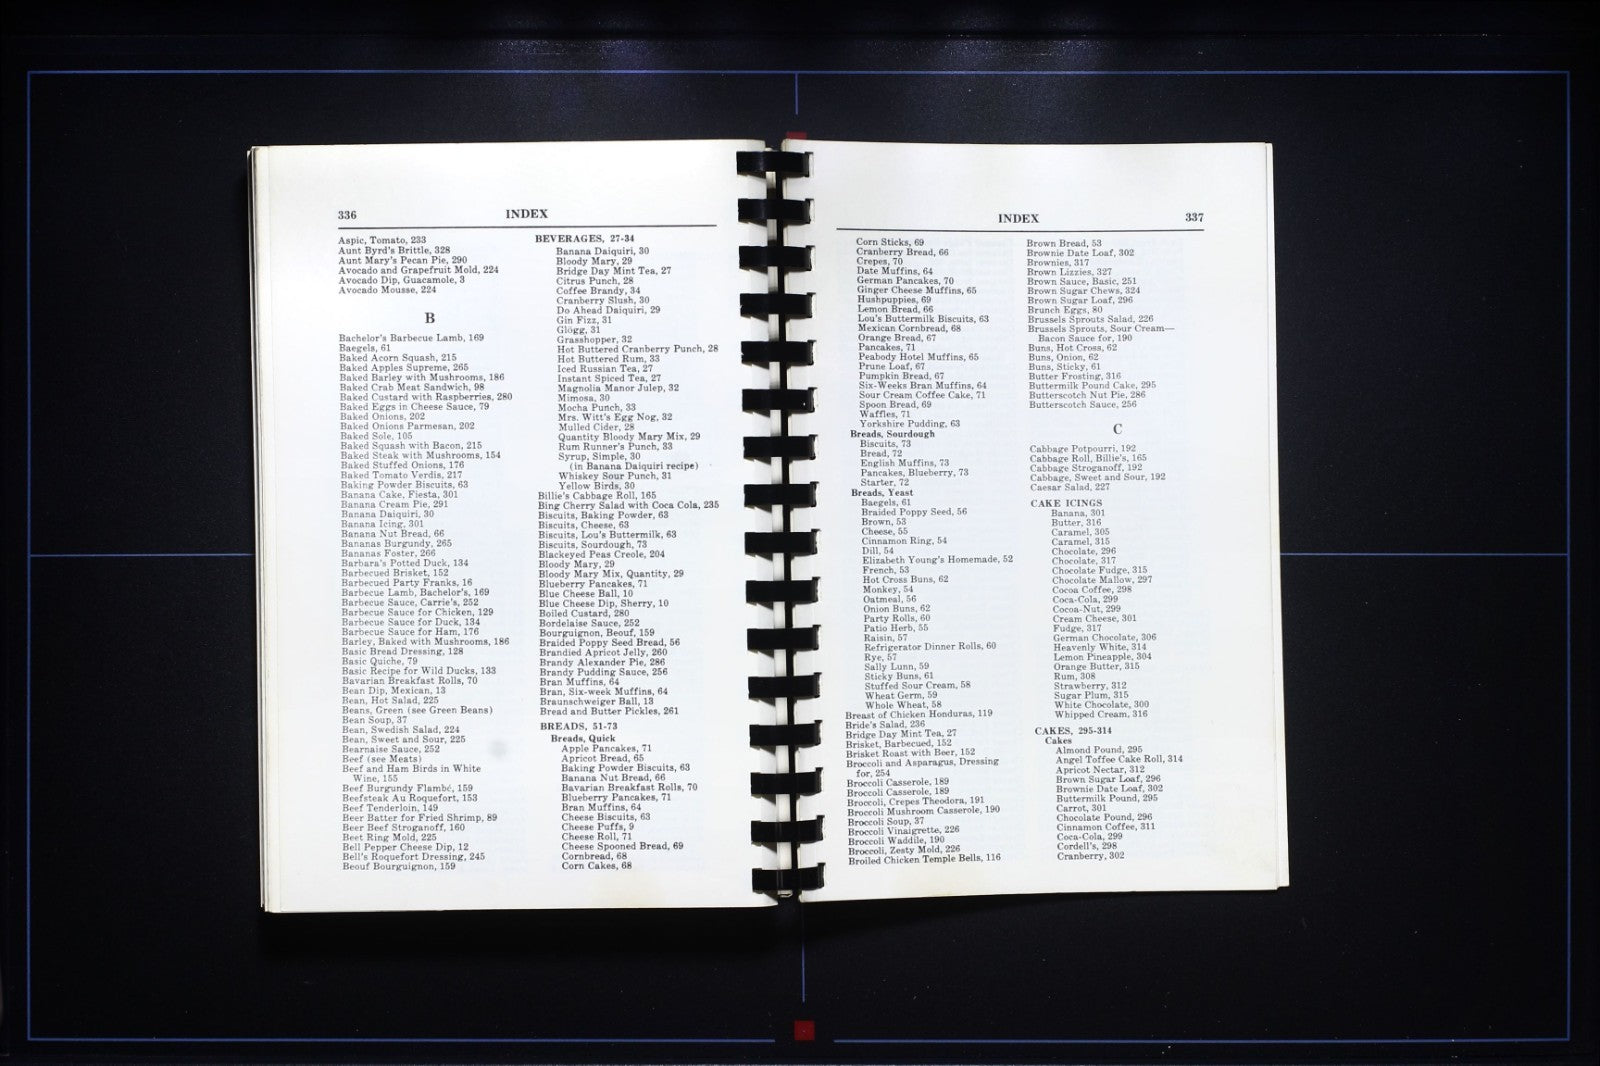 336
INDEX
Aspic, Tomato, 233
Aunt Byrd's Brittle, 328
Aunt Mary's Pecan Pie, 290
Avocado and Grapefruit Mold, 224
Avocado Dip, Guacamole, 3
Avocado Mousse, 224
B
Bachelor's Barbecue Lamb, 169
Baegels, 61
Baked Acorn Squash, 215
Baked Apples Supreme, 265
Baked Barley with Mushrooms, 186
Baked Crab Meat Sandwich, 98
Baked Custard with Raspberries, 280
Baked Eggs in Cheese Sauce, 79
Baked Onions, 202
Baked Onions Parmesan, 202
Baked Sole, 105
Baked Squash with Bacon, 215
Baked Steak with Mushrooms, 154
Baked Stuffed Onions, 176
Baked Tomato Verdis, 217
Baking Powder Biscuits, 63
Banana Cake, Fiesta, 301
Banana Cream Pie, 291
Banana Daiquiri, 30
Banana Icing, 301
Banana Nut Bread, 66
Bananas Burgundy, 265
Bananas Foster, 266
Barbara's Potted Duck, 134
Barbecued Brisket, 152
Barbecued Party Franks, 16
Barbecue Lamb, Bachelor's, 169
Barbecue Sauce, Carrie's, 252
Barbecue Sauce for Chicken, 129
Barbecue Sauce for Duck, 134
Barbecue Sauce for Ham, 176
Barley, Baked with Mushrooms, 186
Basic Bread Dressing, 128
Basic Quiche, 79
Basic Recipe for Wild Ducks, 133
Bavarian Breakfast Rolls, 70
Bean Dip, Mexican, 13
Bean, Hot Salad, 225
Beans, Green (see Green Beans)
Bean Soup, 37
Bean, Swedish Salad, 224
Bean, Sweet and Sour, 225
Bearnaise Sauce, 252
Beef (see Meats)
Beef and Ham Birds in White
Wine, 155
Beef Burgundy Flambé, 159
Beefsteak Au Roquefort, 153
Beef Tenderloin, 149
Beer Batter for Fried Shrimp, 89
Beer Beef Stroganoff, 160
Beet Ring Mold, 225
Bell Pepper Cheese Dip, 12
Bell's Roquefort Dressing, 245
Beouf Bourguignon, 159
BEVERAGES, 27-34
Banana Daiquiri, 30
Bloody Mary, 29
Bridge Day Mint Tea, 27
Citrus Punch, 28
Coffee Brandy, 34
Cranberry Slush, 30
Do Ahead Daiquiri, 29
Gin Fizz, 31
Glögg, 31
Grasshopper, 32
Hot Buttered Cranberry Punch, 28
Hot Buttered Rum, 33
Iced Russian Tea, 27
Instant Spiced Tea, 27
Magnolia Manor Julep, 32
Mimosa, 30
Mocha Punch, 33
Mrs. Witt's Egg Nog, 32
Mulled Cider, 28
Quantity Bloody Mary Mix, 29
Rum Runner's Punch, 33
Syrup, Simple, 30
(in Banana Daiquiri recipe)
Whiskey Sour Punch, 31
Yellow Birds, 30
Billie's Cabbage Roll, 165
Bing Cherry Salad with Coca Cola, 235
Biscuits, Baking Powder, 63
Biscuits, Cheese, 63
Biscuits, Lou's Buttermilk, 63
Biscuits, Sourdough, 73
Blackeyed Peas Creole, 204
Bloody Mary, 29
Bloody Mary Mix, Quantity, 29
Blueberry Pancakes, 71
Blue Cheese Ball, 10
Blue Cheese Dip, Sherry, 10
Boiled Custard, 280
Bordelaise Sauce, 252
Bourguignon, Beouf, 159
Braided Poppy Seed Bread, 56
Brandied Apricot Jelly, 260
Brandy Alexander Pie, 286
Brandy Pudding Sauce, 256
Bran Muffins, 64
Bran, Six-week Muffins, 64
Braunschweiger Ball, 13
Bread and Butter Pickles, 261
BREADS, 51-73
Breads, Quick
Apple Pancakes, 71
Apricot Bread, 65
Baking Powder Biscuits, 63
Banana Nut Bread, 66
Bavarian Breakfast Rolls, 70
Blueberry Pancakes, 71
Bran Muffins, 64
Cheese Biscuits, 63
Cheese Puffs, 9
Cheese Roll, 71
Cheese Spooned Bread, 69
Cornbread, 68
Corn Cakes, 68
INDEX
337
Corn Sticks, 69
Cranberry Bread, 66
Crepes, 70
Date Muffins, 64
German Pancakes, 70
Ginger Cheese Muffins, 65
Hushpuppies, 69
Lemon Bread, 66
Lou's Buttermilk Biscuits, 63
Mexican Cornbread, 68
Orange Bread, 67
Pancakes, 71
Peabody Hotel Muffins, 65
Prune Loaf, 67
Pumpkin Bread, 67
Six-Weeks Bran Muffins, 64
Sour Cream Coffee Cake, 71
Spoon Bread, 69
Waffles, 71
Yorkshire Pudding, 63
Breads, Sourdough
Biscuits, 73
Bread, 72
English Muffins, 73
Pancakes, Blueberry, 73
Starter, 72
Breads, Yeast
Baegels, 61
Braided Poppy Seed, 56
Brown, 53
Cheese, 55
Cinnamon Ring, 54
Dill, 54
Elizabeth Young's Homemade, 52
French, 53
Hot Cross Buns, 62
Monkey, 54
Oatmeal, 56
Onion Buns, 62
Party Rolls, 60
Patio Herb, 55
Raisin, 57
Refrigerator Dinner Rolls, 60
Rye, 57
Sally Lunn, 59
Sticky Buns, 61
Stuffed Sour Cream, 58
Wheat Germ, 59
Whole Wheat, 58
Breast of Chicken Honduras, 119
Bride's Salad, 236
Bridge Day Mint Tea, 27
Brisket, Barbecued, 152
Brisket Roast with Beer, 152
Broccoli and Asparagus, Dressing
for, 254
Broccoli Casserole, 189
Broccoli Casserole, 189
Broccoli, Crepes Theodora, 191
Broccoli Mushroom Casserole, 190
Broccoli Soup, 37
Broccoli Vinaigrette, 226
Broccoli Waddile, 190
Broccoli, Zesty Mold, 226
Broiled Chicken Temple Bells, 116
Brown Bread, 53
Brownie Date Loaf, 302
Brownies, 317
Brown Lizzies, 327
Brown Sauce, Basic, 251
Brown Sugar Chews, 324
Brown Sugar Loaf, 296
Brunch Eggs, 80
Brussels Sprouts Salad, 226
Brussels Sprouts, Sour Cream—
Bacon Sauce for, 190
Buns, Hot Cross, 62
Buns, Onion, 62
Buns, Sticky, 61
Butter Frosting, 316
Buttermilk Pound Cake, 295
Butterscotch Nut Pie, 286
Butterscotch Sauce, 256
C
Cabbage Potpourri, 192
Cabbage Roll, Billie's, 165
Cabbage Stroganoff, 192
Cabbage, Sweet and Sour, 192
Caesar Salad, 227
CAKE ICINGS
Banana, 301
Butter, 316
Caramel, 305
Caramel, 315
Chocolate, 296
Chocolate, 317
Chocolate Fudge, 315
Chocolate Mallow, 297
Cocoa Coffee, 298
Coca-Cola, 299
Cocoa-Nut, 299
Cream Cheese, 301
Fudge, 317
German Chocolate, 306
Heavenly White, 314
Lemon Pineapple, 304
Orange Butter, 315
Rum, 308
Strawberry, 312
Sugar Plum, 315
White Chocolate, 300
Whipped Cream, 316
CAKES, 295-314
Cakes
Almond Pound, 295
Angel Toffee Cake Roll, 314
Apricot Nectar, 312
Brown Sugar Loaf, 296
Brownie Date Loaf, 302
Buttermilk Pound, 295
Carrot, 301
Chocolate Pound, 296
Cinnamon Coffee, 311
Coca-Cola, 299
Cordell's, 298
Cranberry, 302